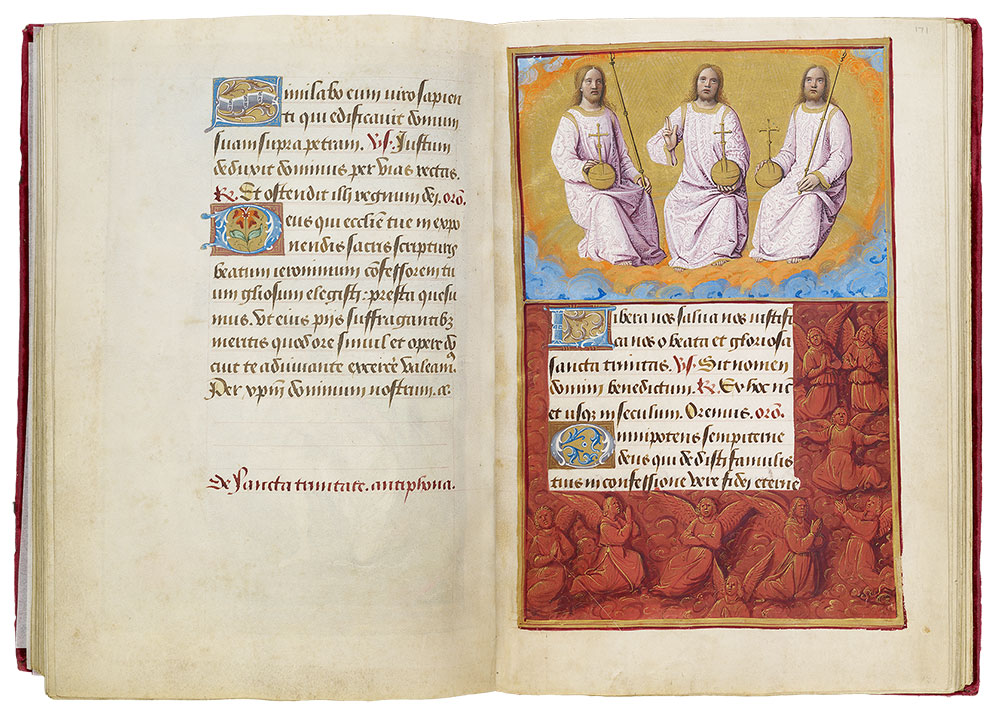 Similabo eum viro sapien
ti qui edificavit domum
suam supra petram. Vs. Justum
deduxit dominus per vias rectas.
R. Et ostendit illi regnum dei. orõ.
Deus qui ecclie tue in expo
nendis sacris scripturis
beatum ieronimum cõfessorem tu
um gliosum elegisti: presta quesu
mus. Ut eius piis suffragantibz
meritis quod ore simul et opere do
cuit te adiuvante exercere valeam⁹
Per xpm dominum nostrum. ac.
De sancta trinitate. antiphona.
171
Libera nos salva nos iustifi
ca nos o beata et gloriosa
sancta trinitas. Vs. Sit nomen
domini benedictum. R. Ex hoc nũc
et usqz in seculum. Oremus. orõ.
Omnipotens sempiterne
deus qui dedisti famulis
tuis in confessione vere fidei eterne